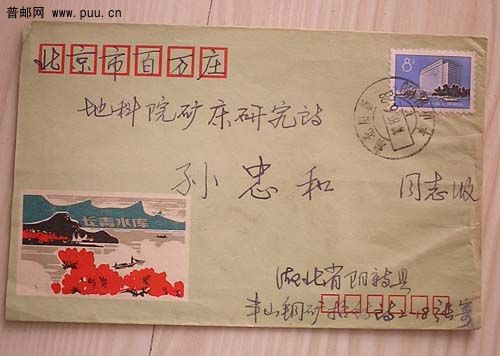 普邮网
www.puu.cn
北京市百万庄
8分
地科院矿床研究所
孙忠和 同志收
长青水库
湖北省阳新县
丰山铜矿